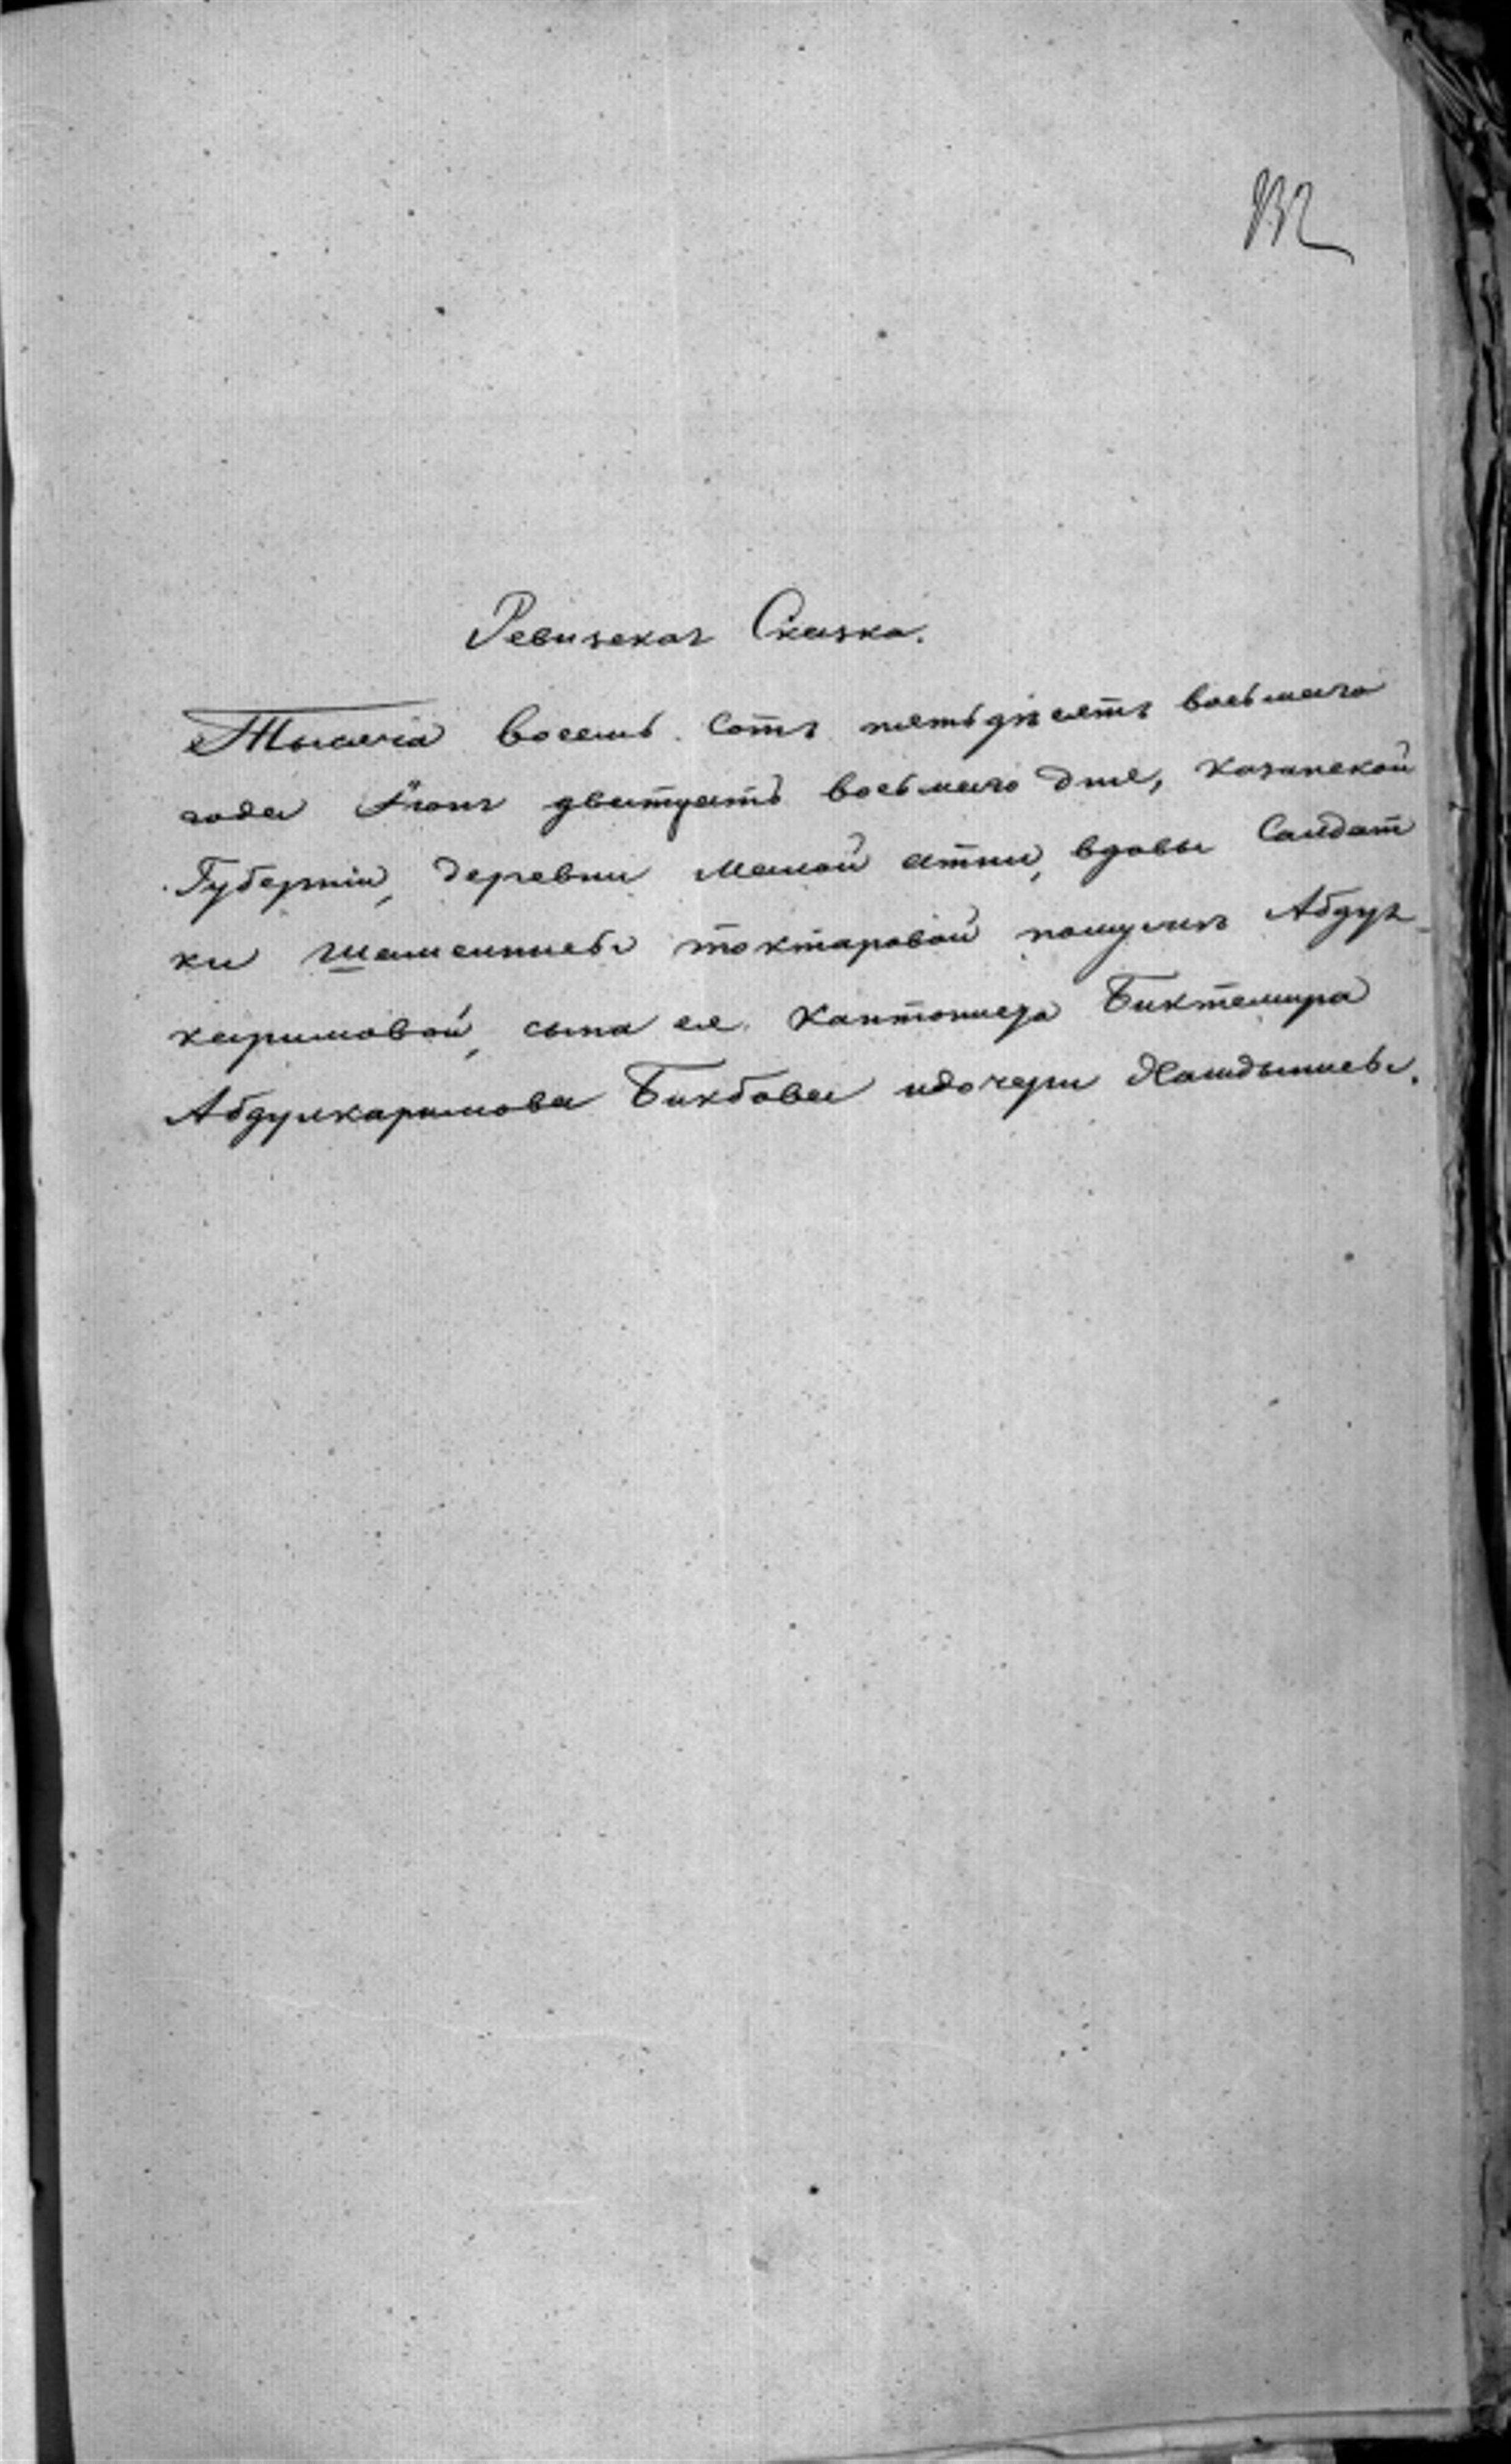 132
Ревизская Сказка.
Тысяча восемь сотъ пятьдесятъ восьмаго
года Іюня дватцать восьмаго дня, Казанской
Губерніи, деревни малой атни, вдовы Салдат
ки токтаровой помужѣ Абдул
каримовой, сына ея Кантониста Биктемира
Абдулкаримова Бикбова идочери